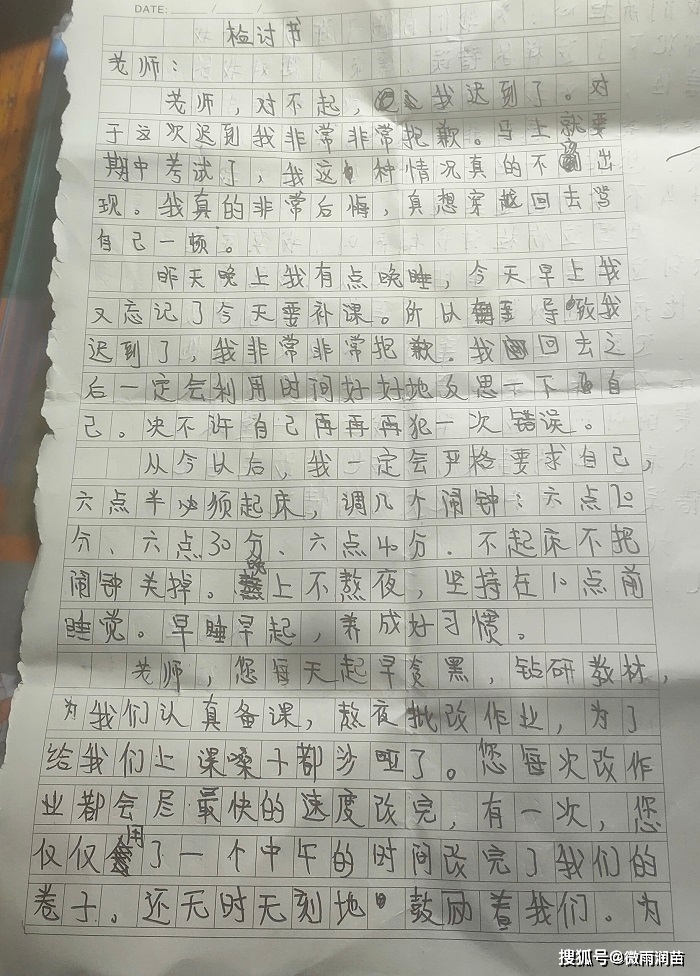 DATE:
检讨书
老师：
老师，对不起，我迟到了。对
于这次迟到我非常非常抱歉。马上就要
期中考试了，我这种情况真的不应出
现。我真的非常后悔，真想穿越回去骂
自己一顿。
昨天晚上我有点晚睡，今天早上我
又忘记了今天要补课。所以导致我
迟到了，我非常非常抱歉．我回去之
后一定会利用时间好好地反思一下自
己。决不许自己再再再犯一次错误。
从今以后，我一定会严格要求自己，
六点半必须起床，调几个闹钟：六点20
分、六点30分、六点40分．不起床不把
闹钟关掉。晚上不熬夜，坚持在10点前
睡觉。早睡早起，养成好习惯。
老师，您每天起早贪黑，钻研教材，
为我们认真备课，熬夜批改作业，为了
给我们上课嗓子都沙哑了。您每次改作
业都会尽最快的速度改完，有一次，您
仅仅用了一个中午的时间改完了我们的
卷子。还无时无刻地鼓励着我们。为
搜狐号@微雨润苗